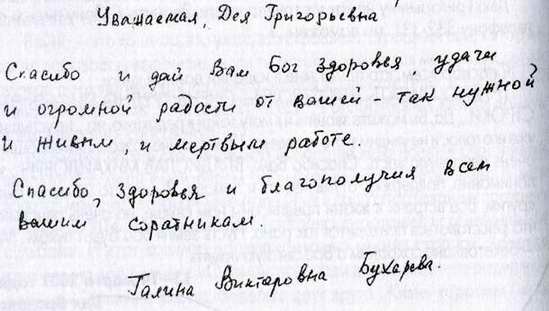 Уважаемая, Дея Григорьевна
Спасибо и дай Вам Бог здоровья, удачи
и огромной радости от вашей – так нужной
и живым, и мертвым работе.
Спасибо, здоровья и благополучия всем
вашим соратникам.
Галина Викторовна Бухарева.